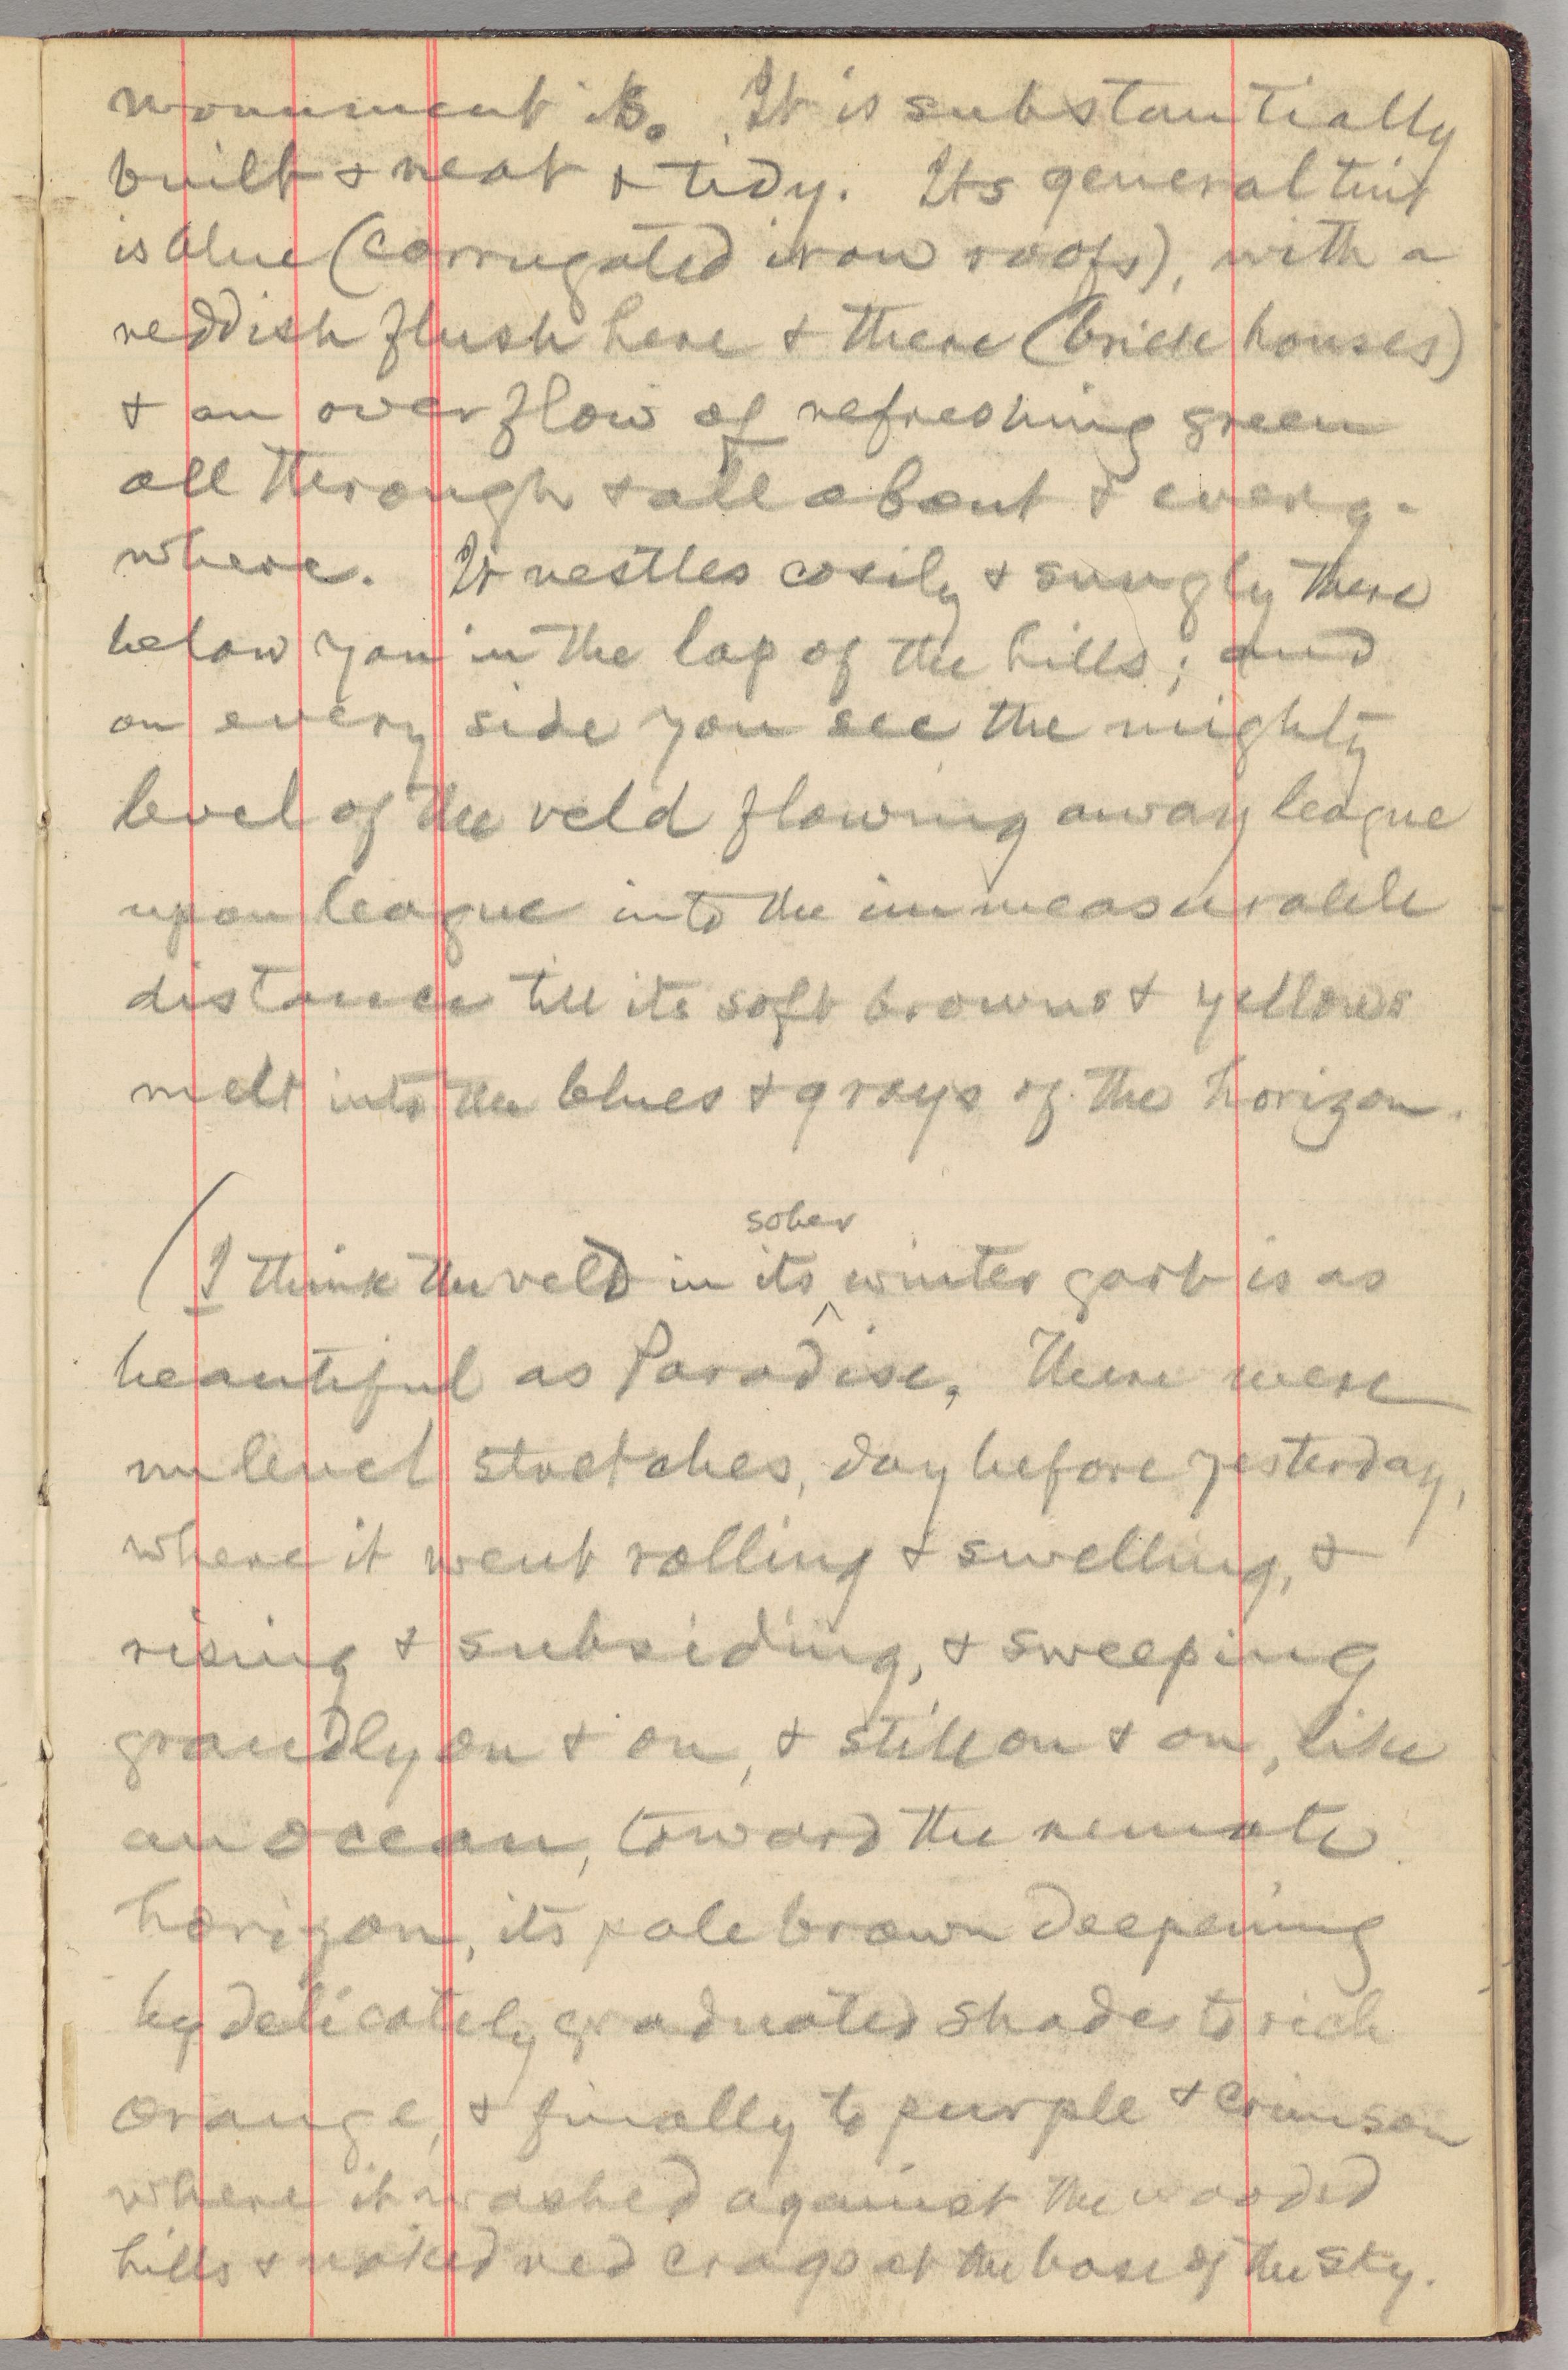 monument is. It is substantially
built & neat & tidy. Its general tint
is blue (corrugated iron roofs), with a
reddish flush here & there (brick houses)
& an overflow of refreshing green
all through & all about & every-
where. It nestles cosily & snugly there
below you in the lap of the hills; and
on every side you see the mighty
level of the veld flowing away league
upon league into the immeasurable
distance till its soft browns & yellows
melt into the blues & grays of the horizon.
sober
(I think the veld in its ^ winter garb is as
beautiful as Paradise. There were
unlevel stretches, day before yesterday,
where it went rolling & swelling, &
rising & subsiding, & sweeping
grandly on & on, & still on & on, like
an ocean, toward the remote
horizon, its pale brown deepening
by delicately graduated shades to rich
orange, & finally to purple & crimson
where it washed against the wooded
hills & naked red crags at the base of the sky.